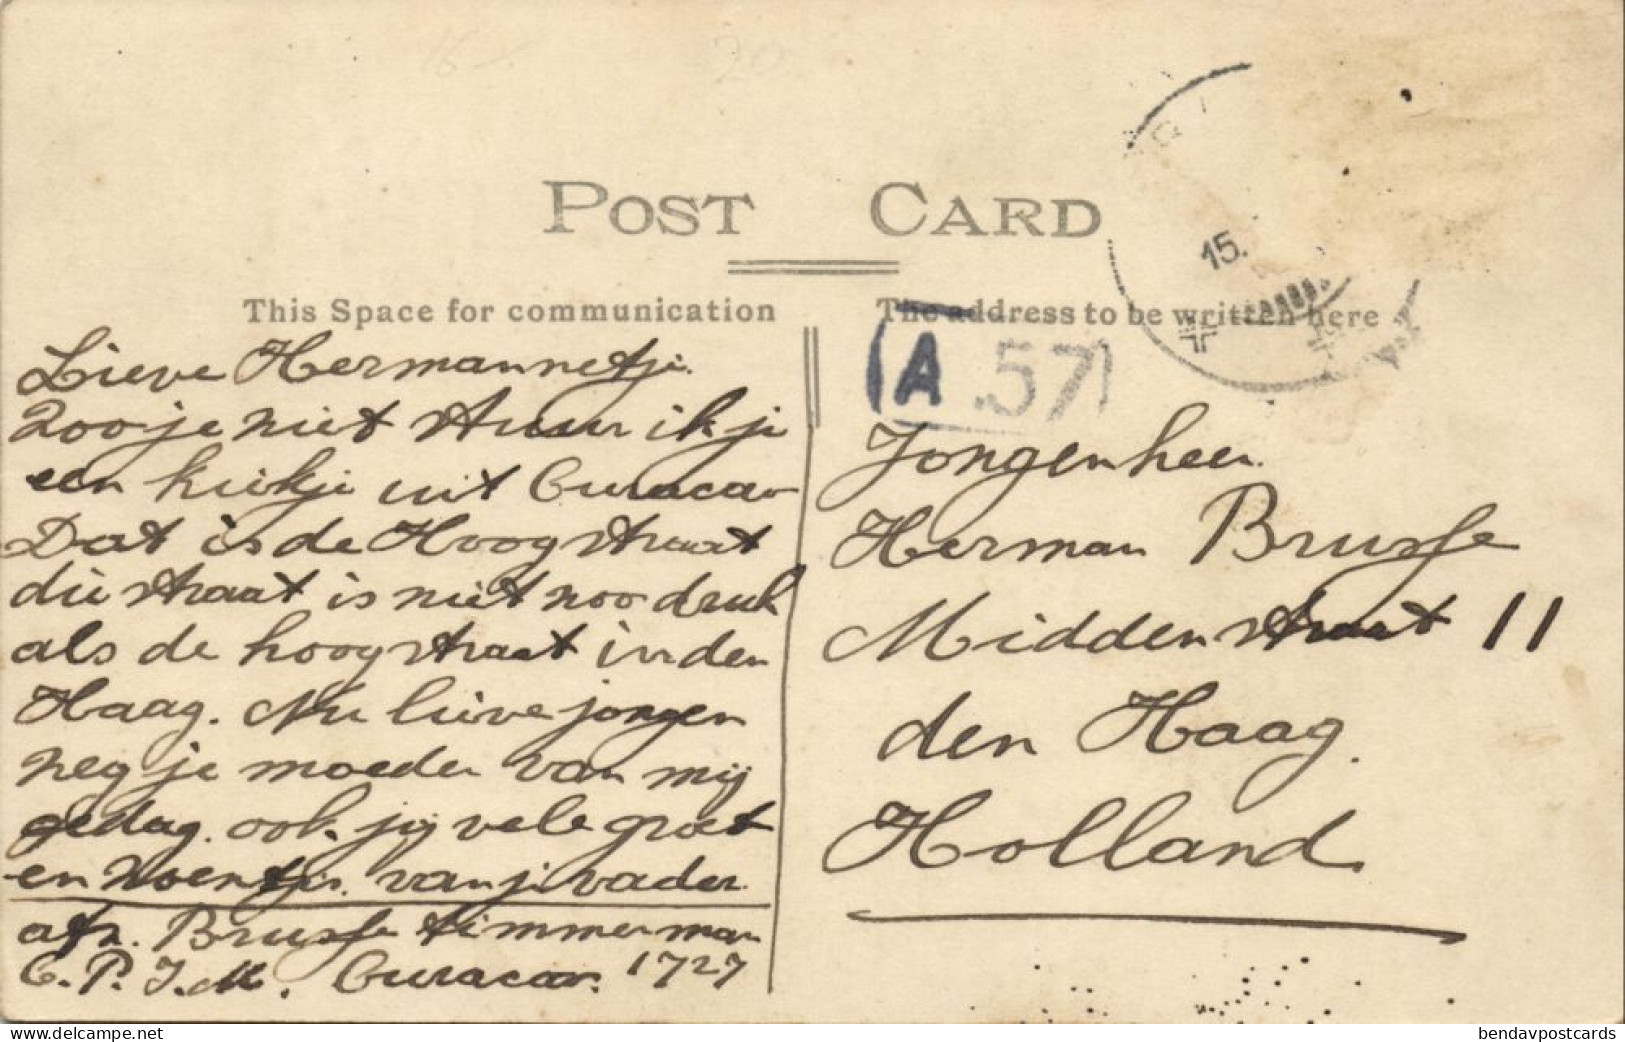 POST CARD
This Space for communication
The address to be written here
15.
(A .57)
Lieve Hermannetje.
Zoo je niet stuur ik je
een kiekje uit Curacao
Dat is de Hoogstraat
die straat is niet zoo druk
als de hoogstraat in den
Haag. Nu lieve jongen
zeg je moeder van mij
gedag. ook jij vele groet
en zoentjes. van je vader.
afz. Brusse timmerman
C.P.I.M. Curacao. 1727
Jongenheer
Herman Brusse
Middenstraat 11
den Haag.
Holland.
www.delcampe.net
bendavpostcards